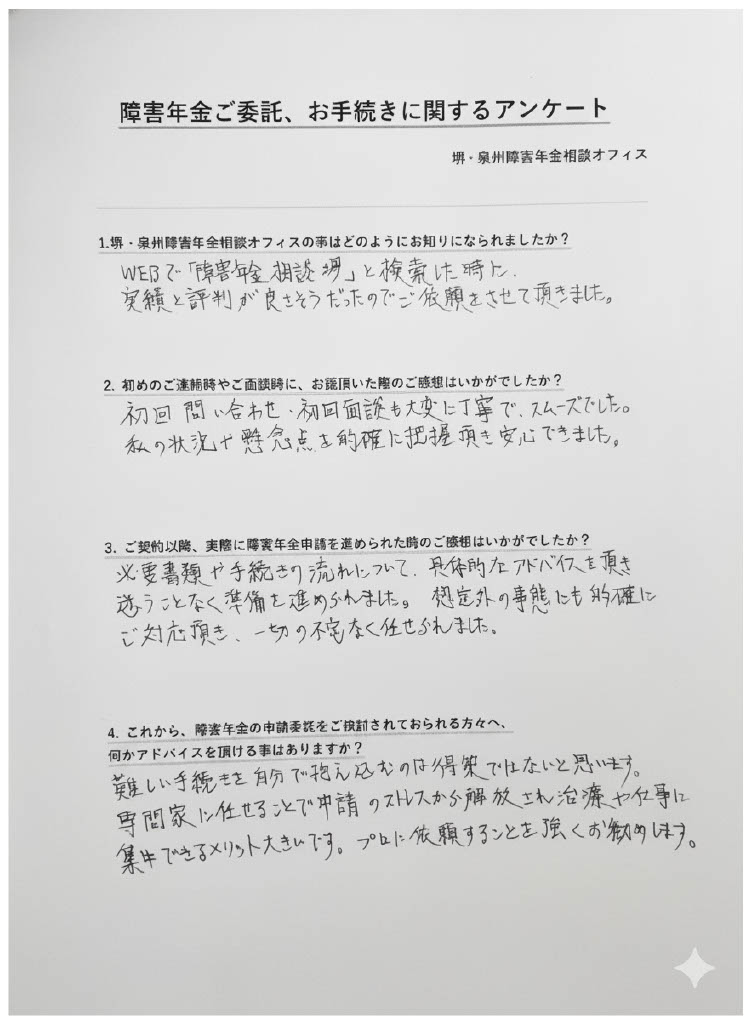 障害年金ご委託、お手続きに関するアンケート
堺・泉州障害年金相談オフィス
1.堺・泉州障害年金相談オフィスの事はどのようにお知りになられましたか？
WEBで「障害年金 相談 堺」と検索した時に、
実績と評判が良さそうだったのでご依頼をさせて頂きました。
2. 初めのご連絡時やご面談時に、お話頂いた際のご感想はいかがでしたか？
初回問い合わせ・初回面談も大変に丁寧で、スムーズでした。
私の状況や懸念点を的確に把握頂き安心できました。
3. ご契約以降、実際に障害年金申請を進められた時のご感想はいかがでしたか？
必要書類や手続きの流れについて、具体的なアドバイスを頂き
迷うことなく準備を進められました。想定外の事態にも的確に
ご対応頂き、一切の不安なく任せられました。
4. これから、障害年金の申請委託をご検討されておられる方々へ、
何かアドバイスを頂ける事はありますか？
難しい手続きを自分で抱え込むのは得策ではないと思います。
専門家に任せることで申請のストレスから解放され治療や仕事に
集中できるメリット大きいです。プロに依頼することを強くお勧めします。